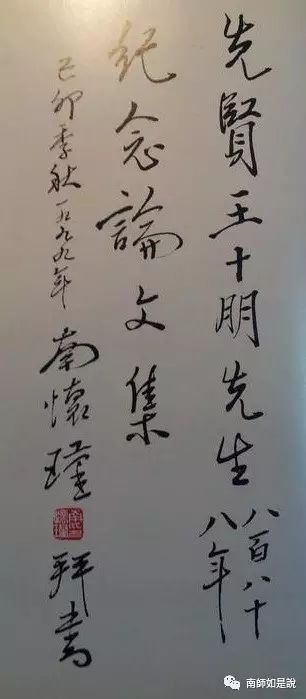 先賢王十朋先生八百八十八年
紀念論文集
己卯季秋一九九九年南懷瑾拜書
南師如是說